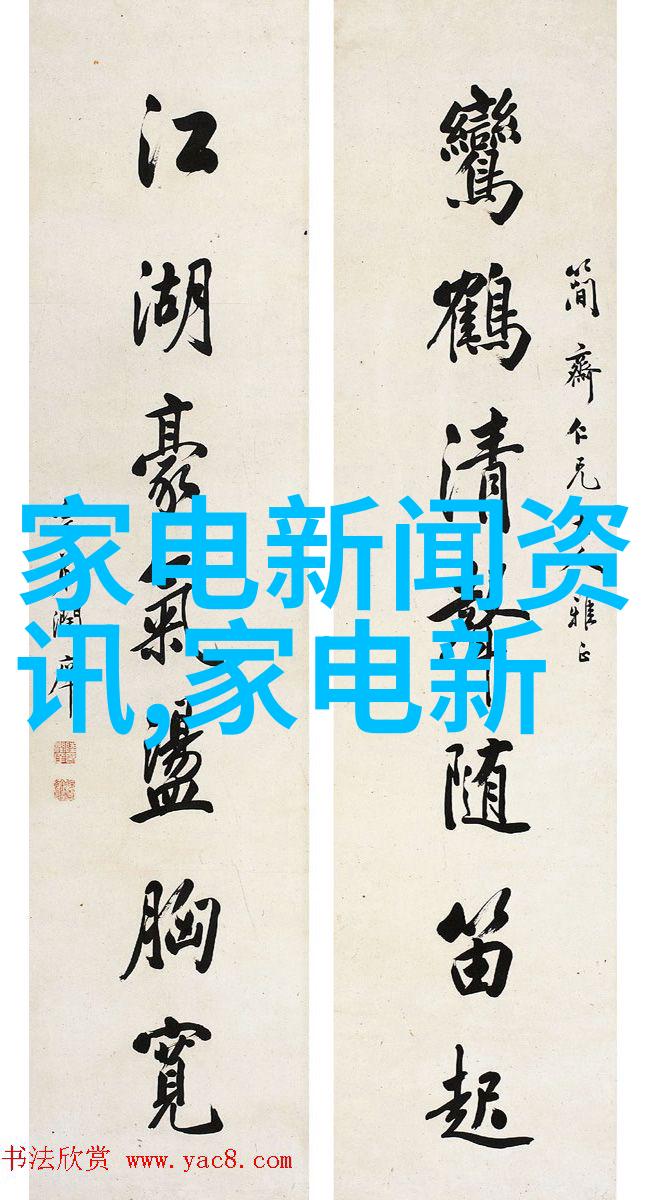 簡齋仁兄大人雅正
鸞鶴清聲随笛起
江湖豪氣盪胸寬
潤庠
家电新闻资
讯,家电新
书法欣赏 www.yac8.com